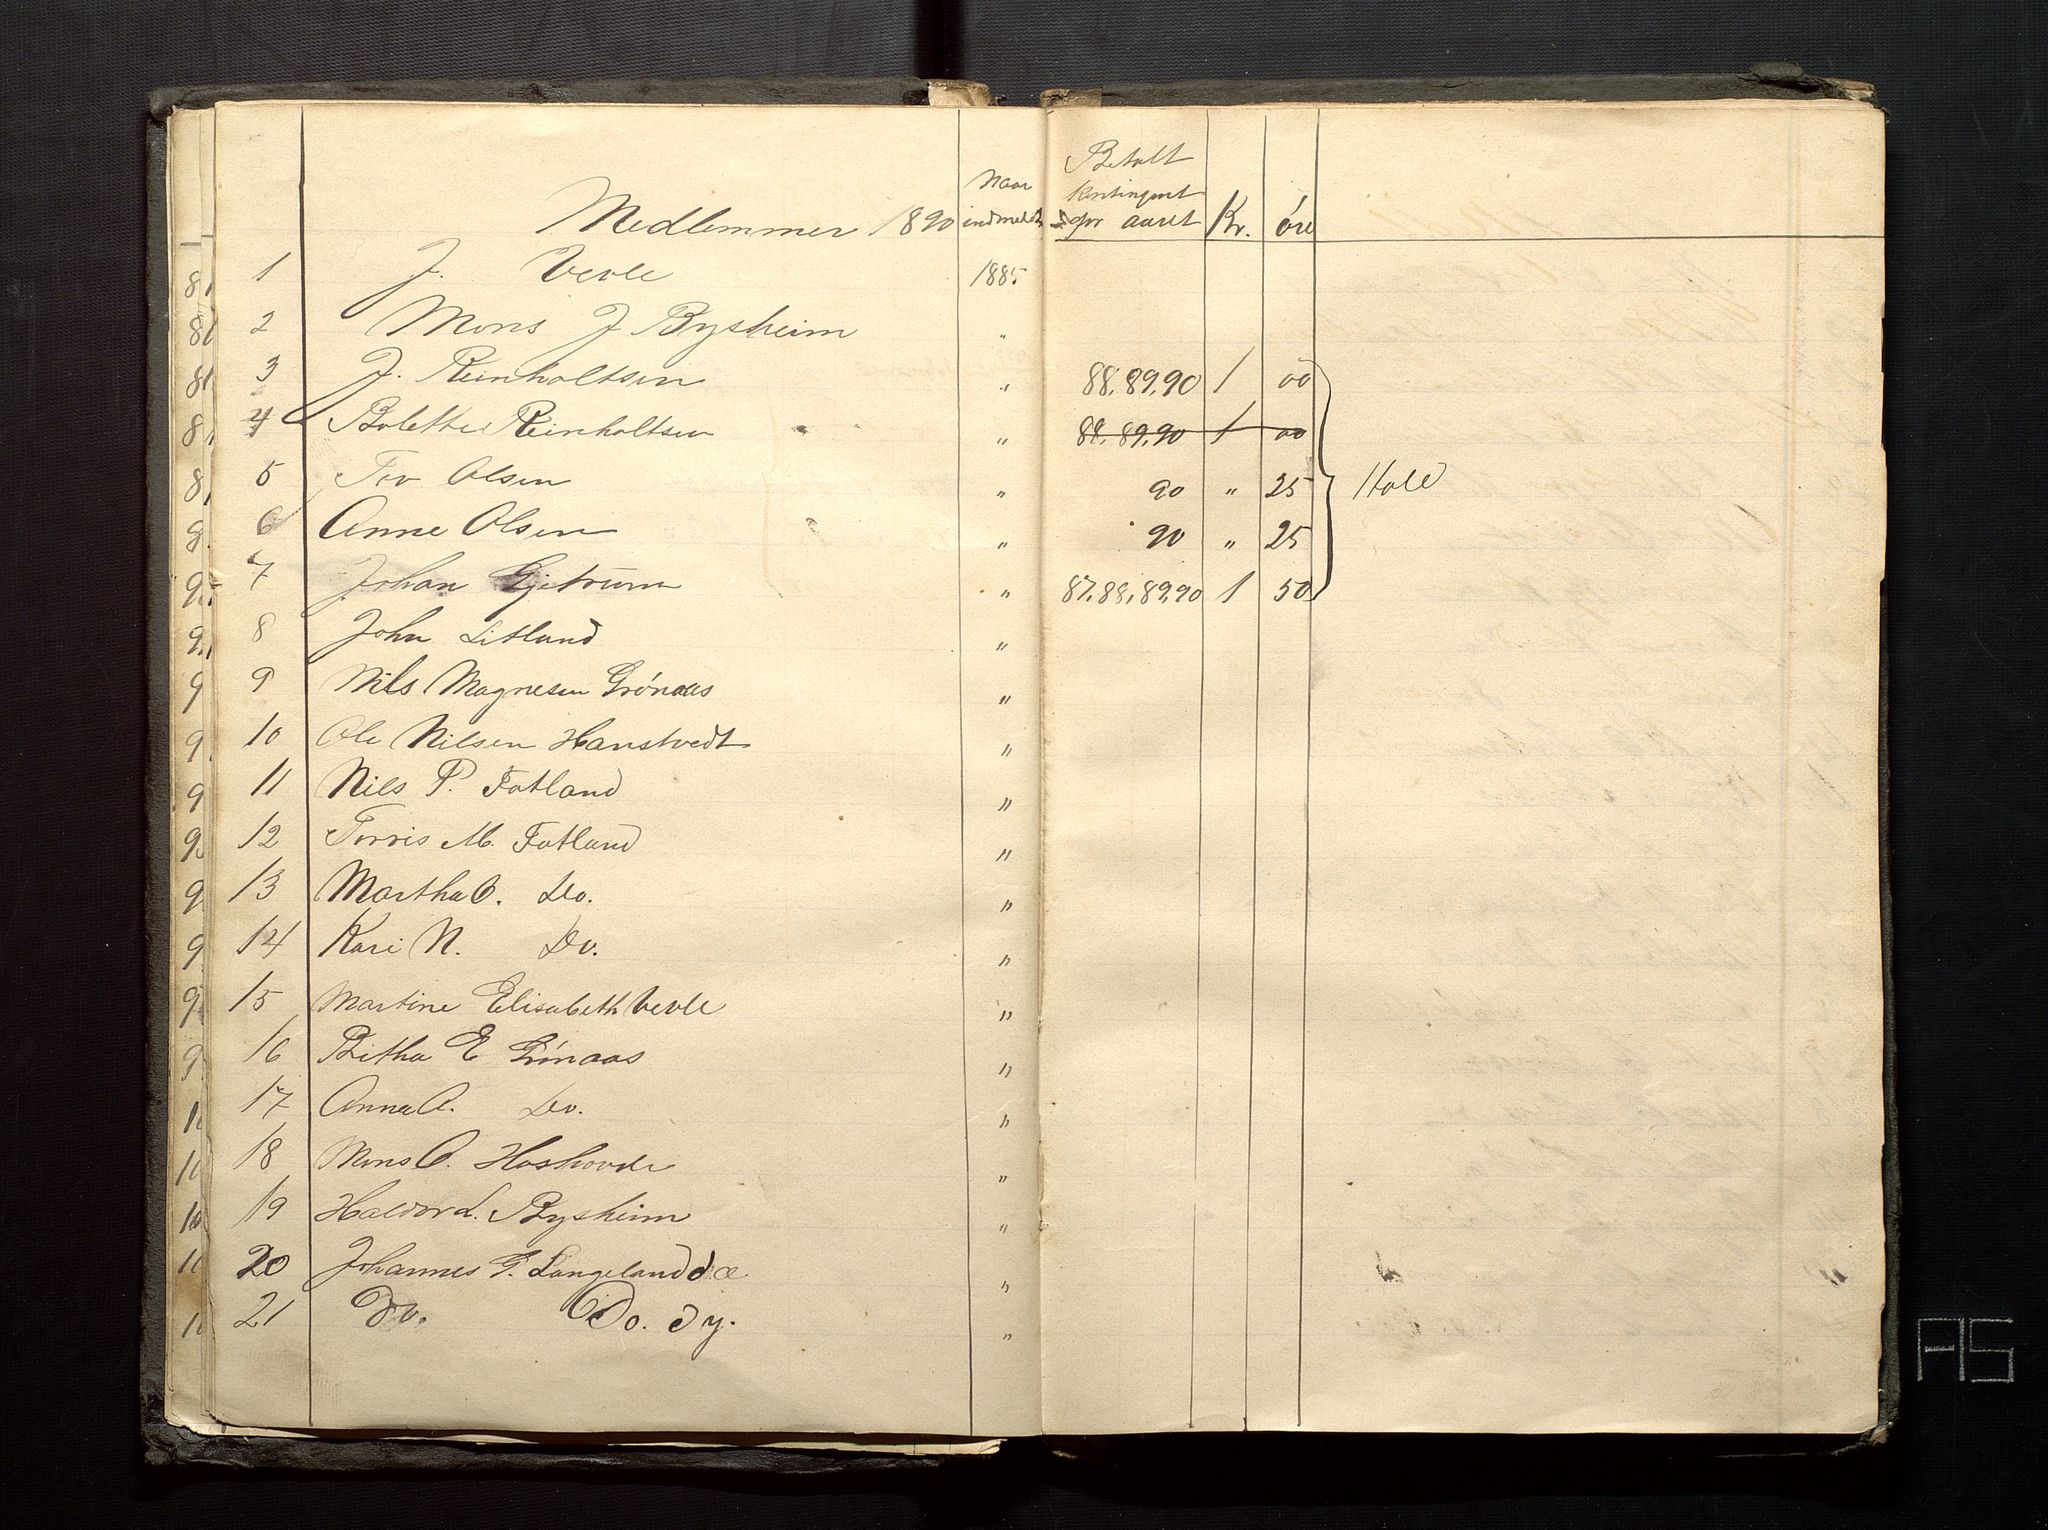 Medlemmer 1890 Naar indmeldt Betalt kontingent for aaret Kr. öre
1 J. Vevle 1885
2 Mons J Bysheim "
3 J. Reinholtsen " 88,89,90 1 00
4 Bolette Reinholtsen " 88,89,90 1 00
5 Tev Olsen " 90 " 25 Hole
6 Anne Olsen " 90 " 25
7 Johan Gjetrum " 87,88,89,90 1 50
8 John Litland "
9 Nils Magnesen Grónaas "
10 Ole Nilsen Hanstvedt "
11 Nils P. Fatland "
12 Torris M. Fatland "
13 Martha O. Do. "
14 Kari N. Do. "
15 Martine Elisabeth Vevle "
16 Britha E Grónaas "
17 Anna A. Do. "
18 Mons O. Hoshovde "
19 Haldor L. Bysheim "
20 Johannes G. Langeland d. æ "
21 Do. Do. d y. "
AS